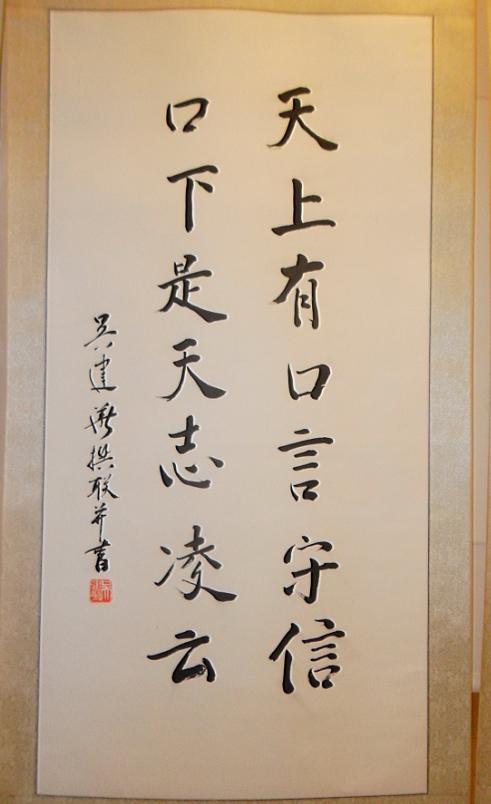 天上有口言守信
口下是天志凌云
吴建华撰联并书